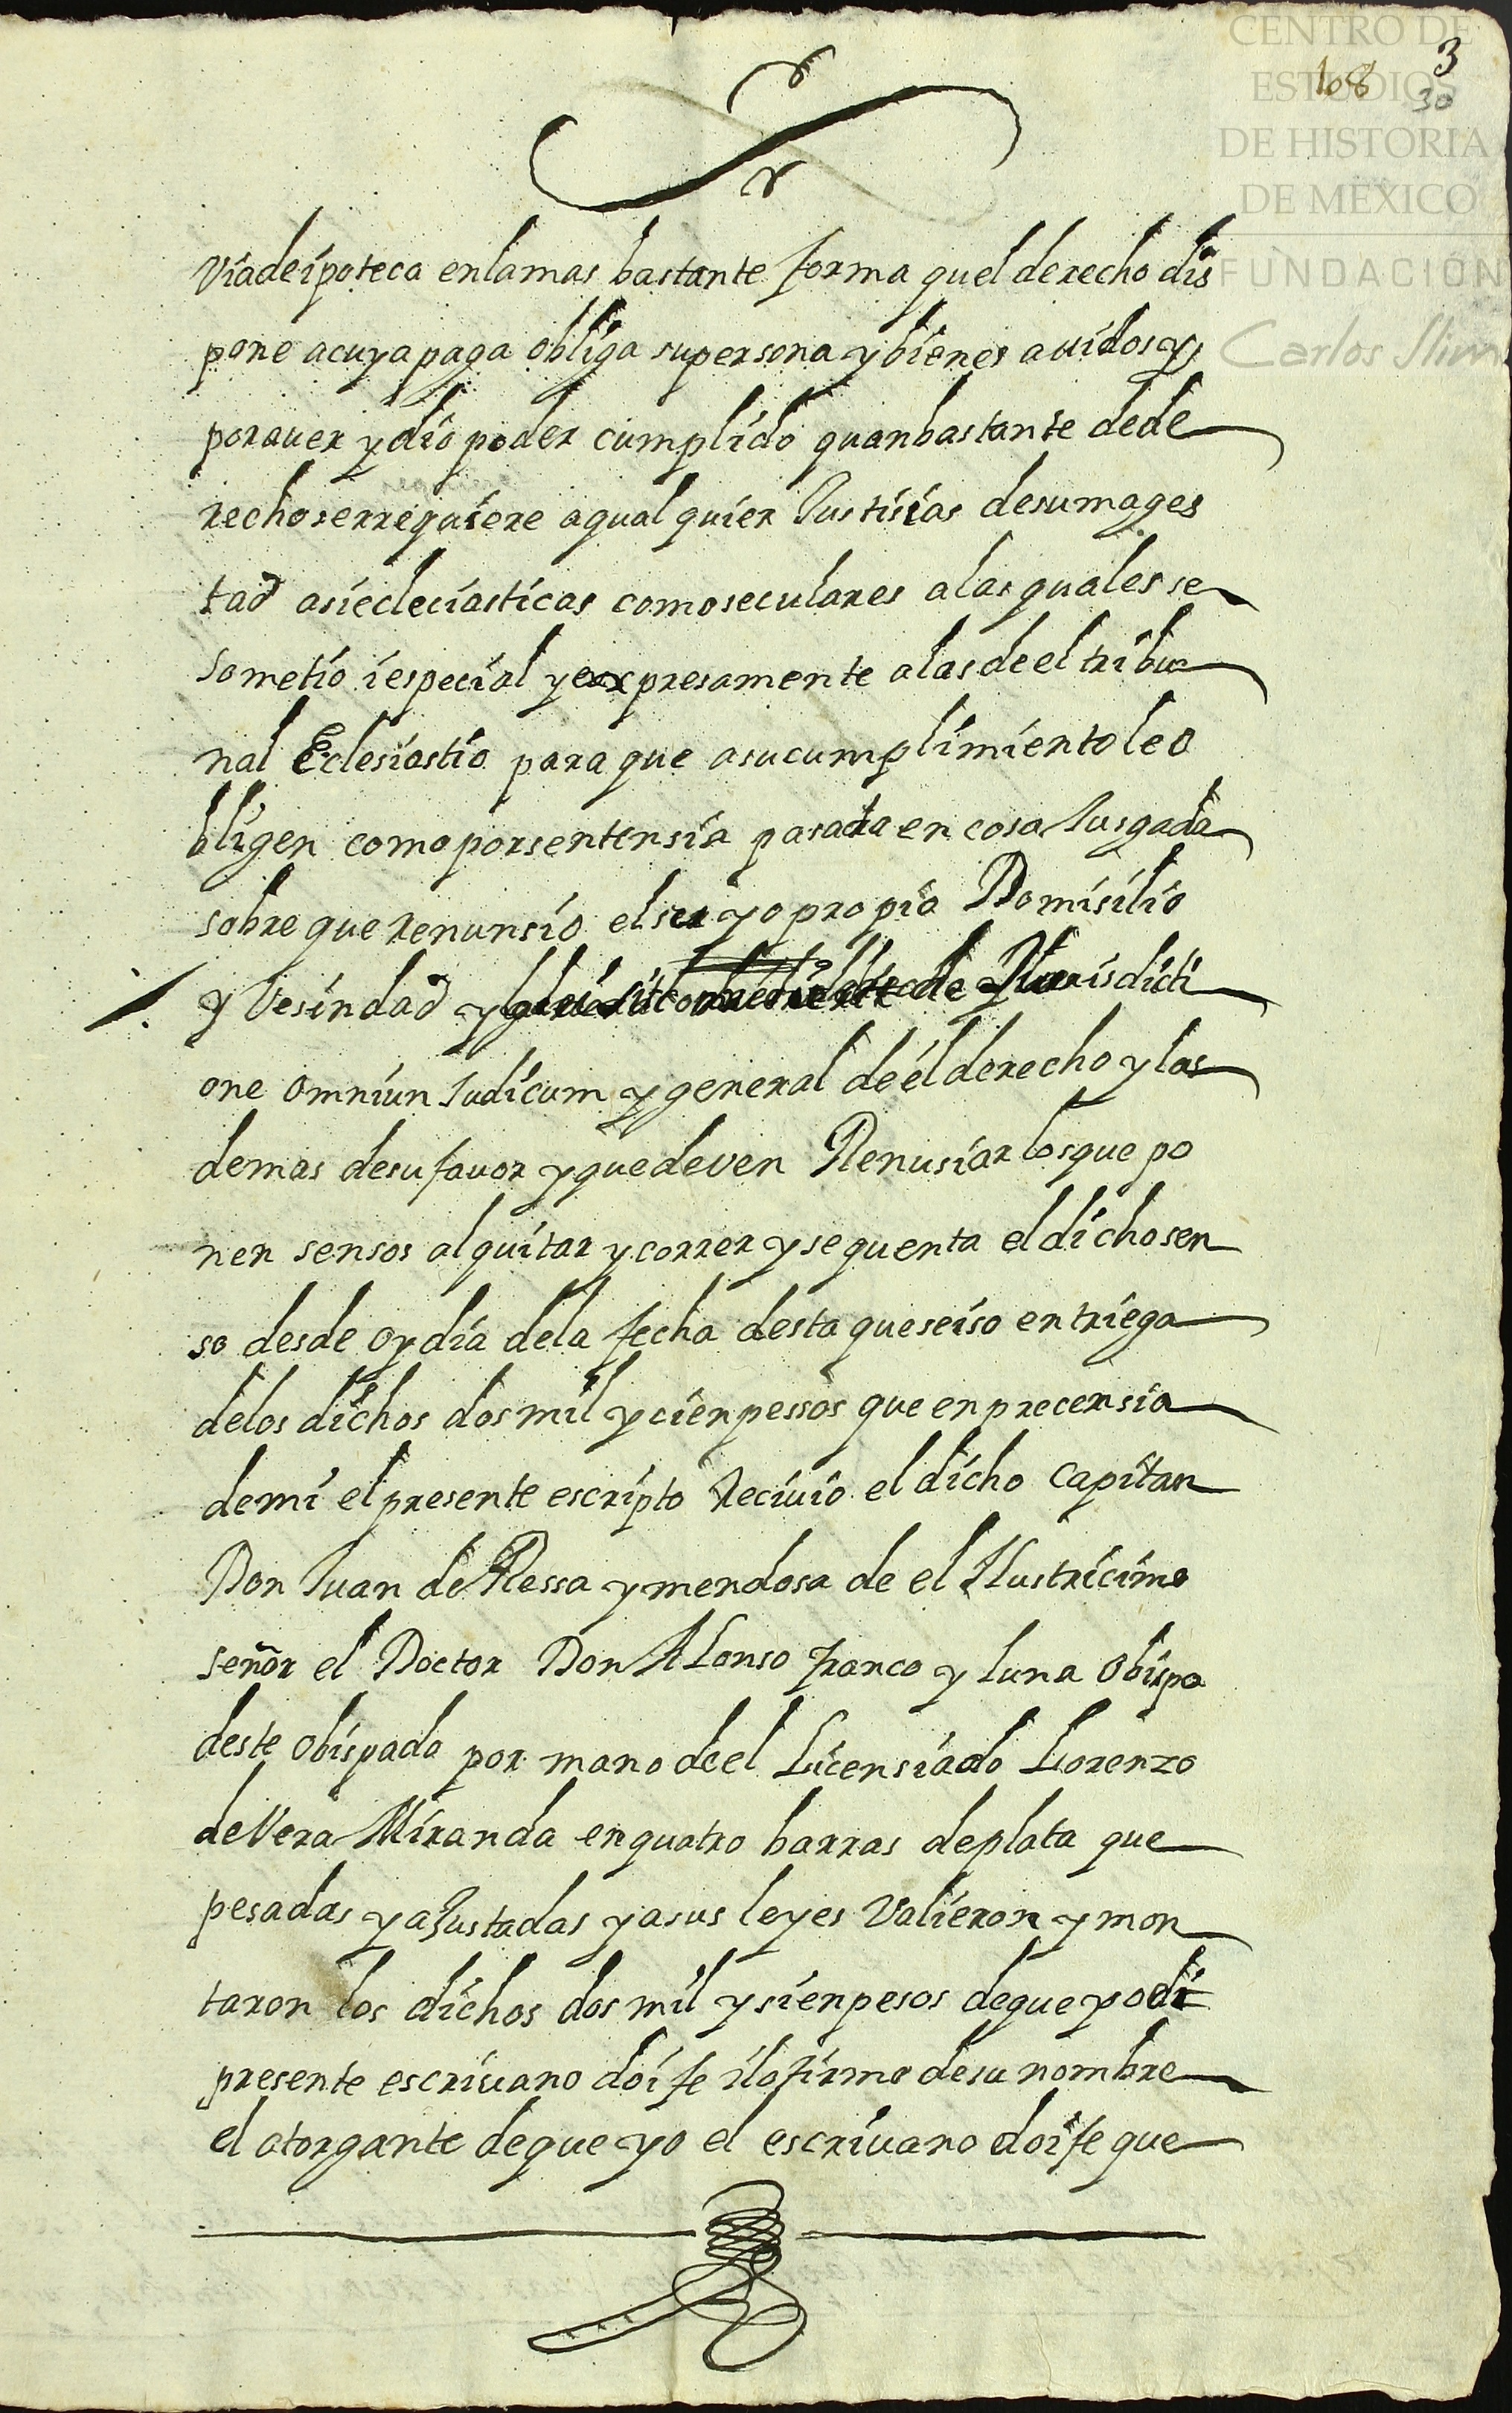 CENTRO DE
ESTUDIOS
DE HISTORIA
DE MEXICO
FUNDACIÓN
Carlos Slim
3
108
30
Viadeipoteca enlamas bastante forma quel derecho dis
pone acuya paga obliga supersona y bienes auidos y
porauer y dio poder cumplido quanbastante dede
recho serrequiere aqual quier Justisias desumages
tad asiecleciasticas comoseculares alas quales se
sometio iespecial y expresamente alas de el tribu
nal Eclesiastio para que asucumplimiento le o
bligen comoporsentensia pasada en cosa Jusgada
sobre que renunsio el suyo propio Domisilio
y Vesindad y de Jurisdicti
one omniun Judicum y general de el derecho y las
demas desu fauor y quedeven Renusiar los que po
nen sensos al quitar y correr y se quenta el dicho sen
so desde oy dia dela fecha desta queseiso entriega
delos dichos dos mil y cien pessos que en precensia
demi el presente escripto Reciuio el dicho Capitan
Don Juan de Ressa y mendosa de el Ilustricimo
señor el Doctor Don Alonso franco y luna obispo
deste obispado por mano de el Licensiado Lorenzo
de Vera Miranda en quatro barras deplata que
pesadas y aJustadas y asus leyes Valieron y mon
taron los dichos dos mil y sien pesos deque yo di
presente escriuano doi fe ilo firmo desu nombre
el otorgante deque yo el escriuano doi fe que